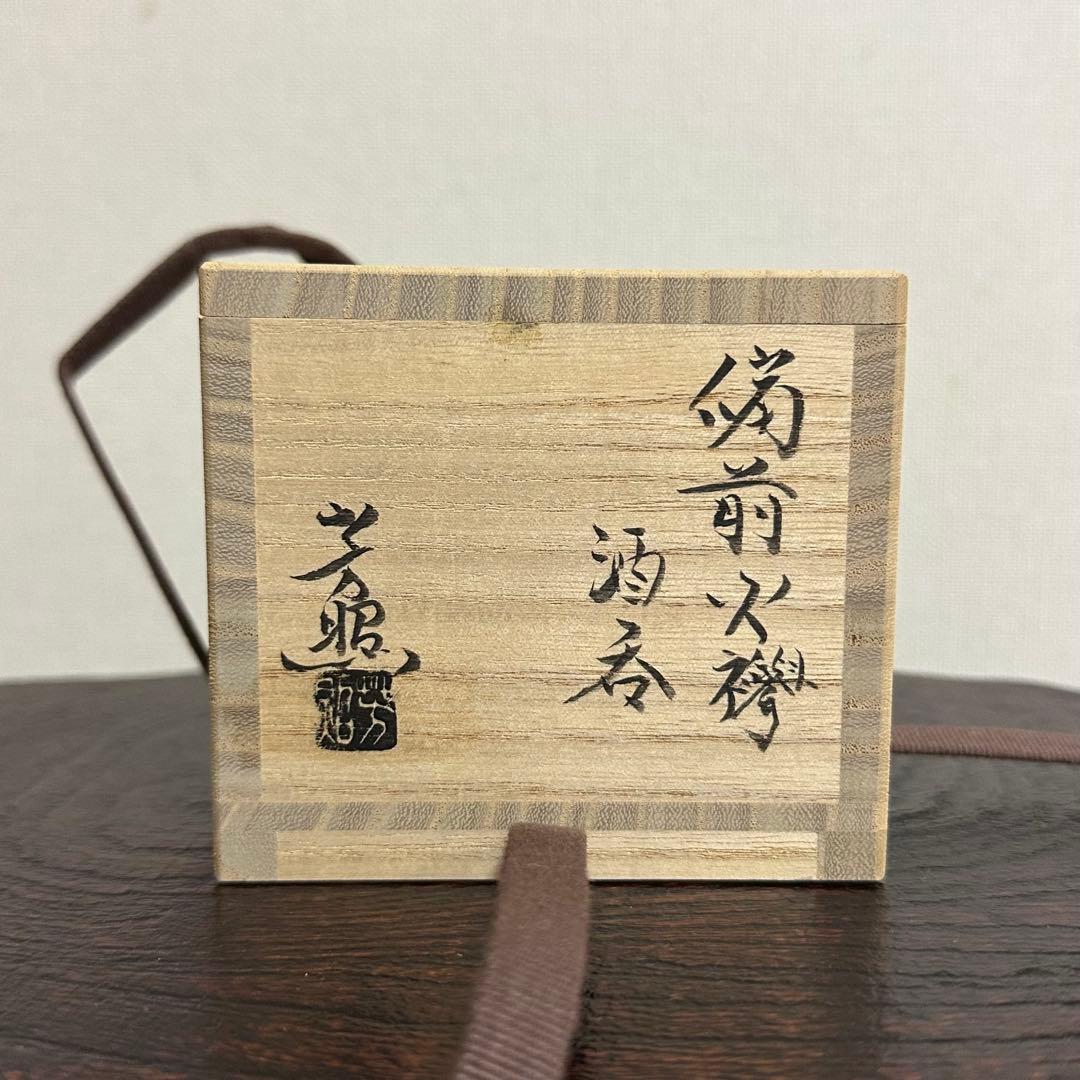 備前火襷
酒呑
芳昭